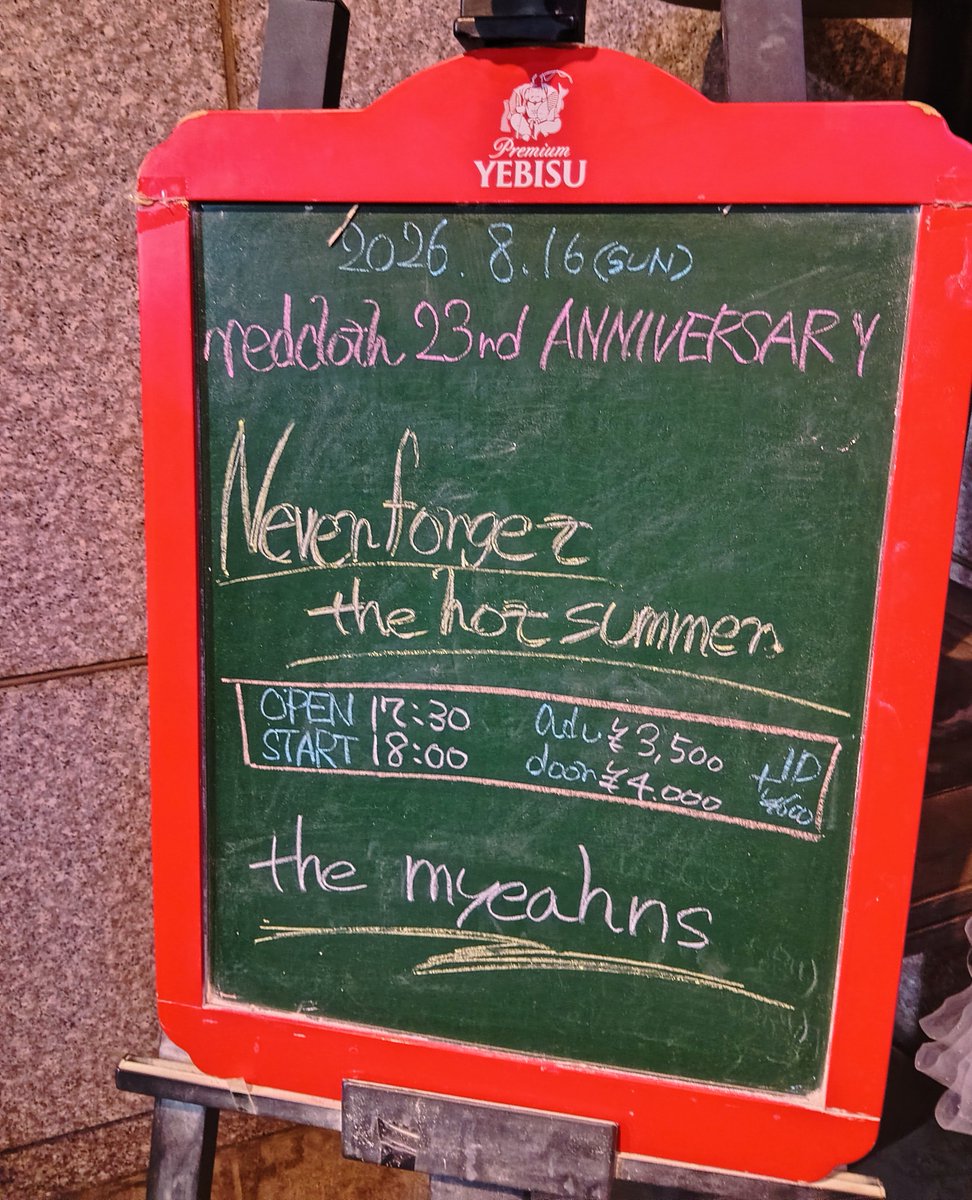 Premium
YEBISU
2026.8.16(SUN)
redcloth 23rd ANNIVERSARY
Never forget
the hot summer
OPEN 17:30 adv ¥3,500 +1D
START 18:00 door ¥4.000 ¥600
the myeahns